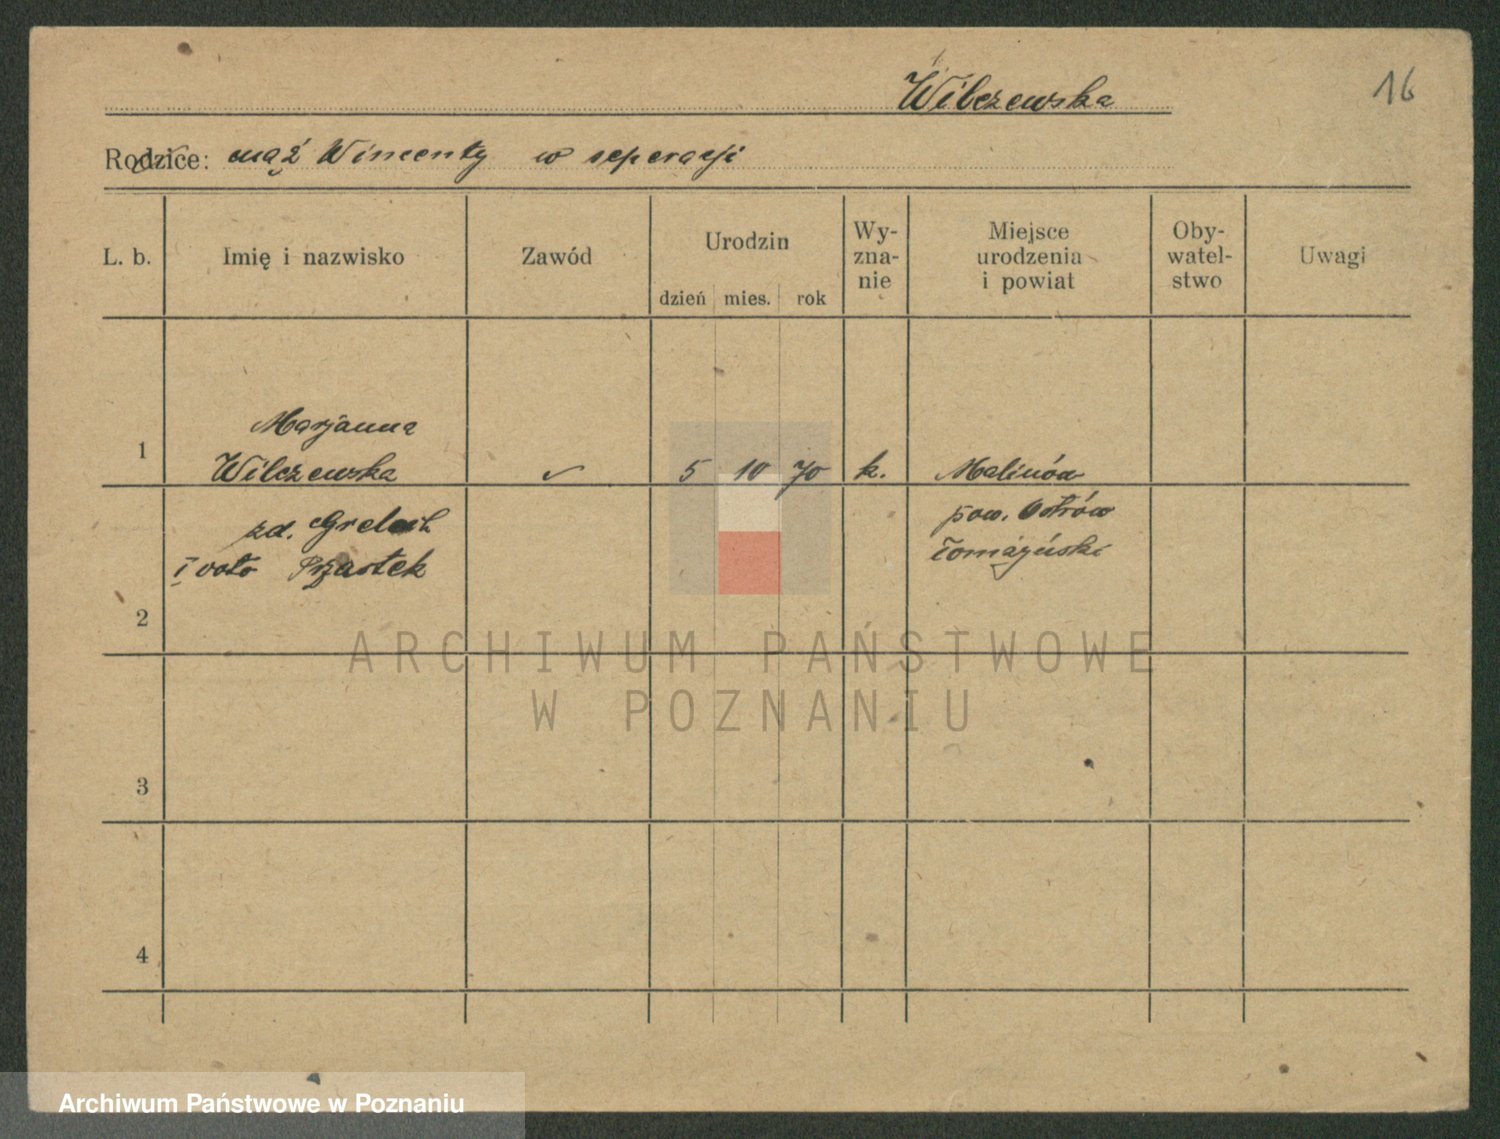 Wilczewska
16
Rodzice: mąż Wincenty w seperacji
L. b.
Imię i nazwisko
Zawód
Urodzin
dzień mies. rok
Wy-
zna-
nie
Miejsce
urodzenia
i powiat
Oby-
watel-
stwo
Uwagi
1
Marjanna
Wilczewska
5 10 70 k.
Malinów
zd.
I voto
pow. Ostrów
2
3
4
ARCHIWUM PAŃSTWOWE
W POZNANIU
Archiwum Państwowe w Poznaniu